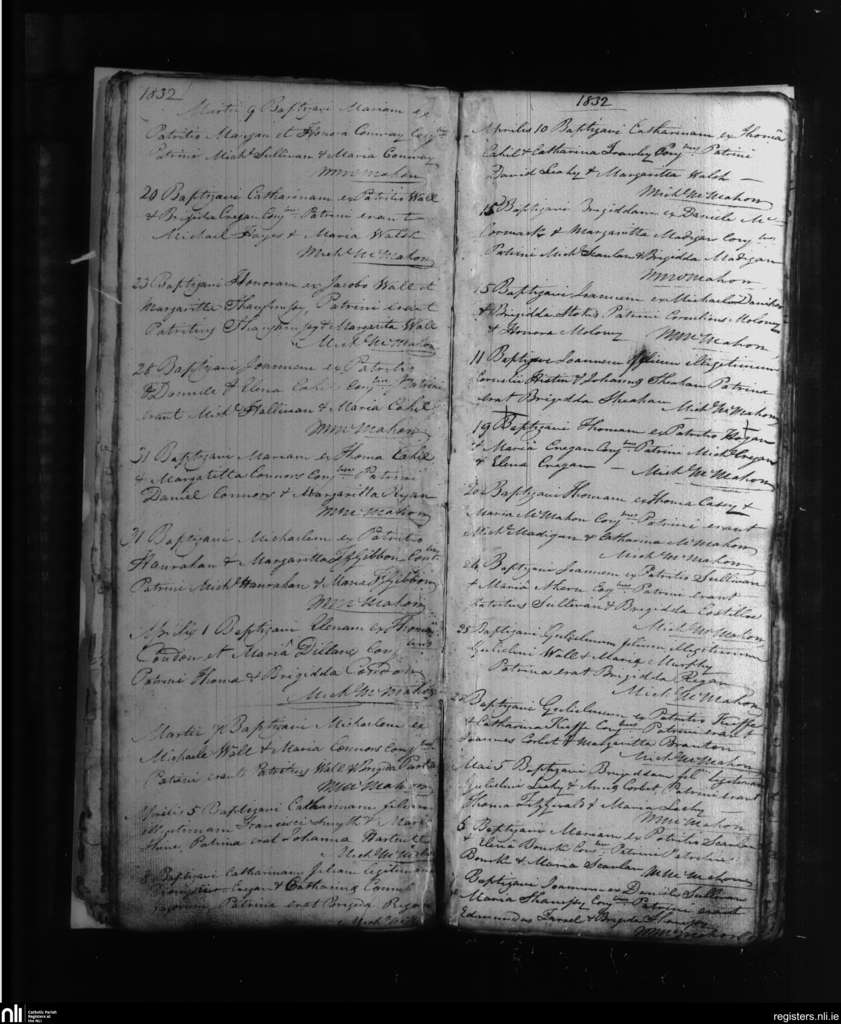 1832
Martii 9 Baptizavi Mariam ex
Patritio Mangan et Honora Conway Conj
Patrini Mich Sullivan & Maria Conway
Mich McMahon
20 Baptizavi Catharinam ex Patritio Wall
& Brigida Cregan Conj Patrini erant
Michael Hayes & Maria Walsh
Mich McMahon
23 Baptizavi Honoram ex Jacobo Wall et
Margaritta Patrini erant
Patritius & Margarita Wall
Mich McMahon
Baptizavi Joannem ex Patritio
& Elena Conj Patrini
erant Mich & Maria Cahil
McMahon
31 Baptizavi Mariam ex Thoma Cahil
& Margaritta Connors Conj Patrini
Daniel Connors & Margaritta Ryan
McMahon
31 Baptizavi Michaelem ex Patritio
Hanrahan & Margaritta FzGibbon
Patrini Mich Hanrahan & Maria FzGibbon
McMahon
Aprilis 1 Baptizavi Elenam ex Thoma
Condon et Mariâ Dillane Conj
Patrini Thoma & Brigidda Condon
Mich McMahon
Martii Baptizavi Michaelem ex
Michaele Wall & Maria Connors Conj
Patrini erant Patritius Wall & Brigida
McMahon
Aprilis 5 Baptizavi Catharinam filiam
illegitimam Francisci Smyth & Maria
Patrina erat Johanna
Mich McMahon
8 Baptizavi Catharinam filiam legitimam
& Catharina
Patrina erat Brigida Regan
Mich
1832
Aprilis 10 Baptizavi Catharinam ex Thomâ
Cahil & Catharina Conj Patrini
David Leahy & Margaritta Walsh
Mich McMahon
15 Baptizavi Brigiddam ex Daniele Mc
Cormack & Margaritta Madigan Conj
Patrini Mich Scanlan & Brigidda Madigan
McMahon
15 Baptizavi Joannem ex Michaele
& Brigidda Stokes Patrini Cornelius Molony
& Honora Molony McMahon
11 Baptizavi Joannem filium illegitimum
Cornelii & Johanna Sheahan Patrina
erat Brigidda Sheahan Mich McMahon
19 Baptizavi Thomam ex Patritio Hogan
& Mariâ Cregan Conj Patrini Mich Cregan
& Elena Cregan Mich McMahon
20 Baptizavi Thomam ex Thoma Casey &
Maria McMahon Conj Patrini erant
Mich Madigan & Catharina McMahon
Mich McMahon
24 Baptizavi Joannem ex Patritio Sullivan
& Mariâ Ahern Conj Patrini erant
Patritius Sullivan & Brigidda Costilloe
Mich McMahon
25 Baptizavi Gulielmum filium illegitimum
Gulielmi Wall & Maria Murphy
Patrina erat Brigidda Regan
Mich McMahon
Baptizavi Gulielmum ex Patritio Kieffe
& Catharina Kieffe Conj Patrini erant
Joannes Corbet & Margaritta
Mich McMahon
Maii 5 Baptizavi Brigiddam legitimam
Gulielmi Leahy & Anna Corbet Patrini erant
Thoma Fitzgerald & Maria Leahy
McMahon
6 Baptizavi Mariam ex Patritio Scanlan
& Elena Bourke Conj Patrini Patritius
Bourke & Maria Scanlan McMahon
Baptizavi Joannem ex Daniele Sullivan
& Maria Conj Patrini erant
Edmundus Farrel & Brigida
McMahon
nli
Catholic Parish
Registers at
the NLI
registers.nli.ie